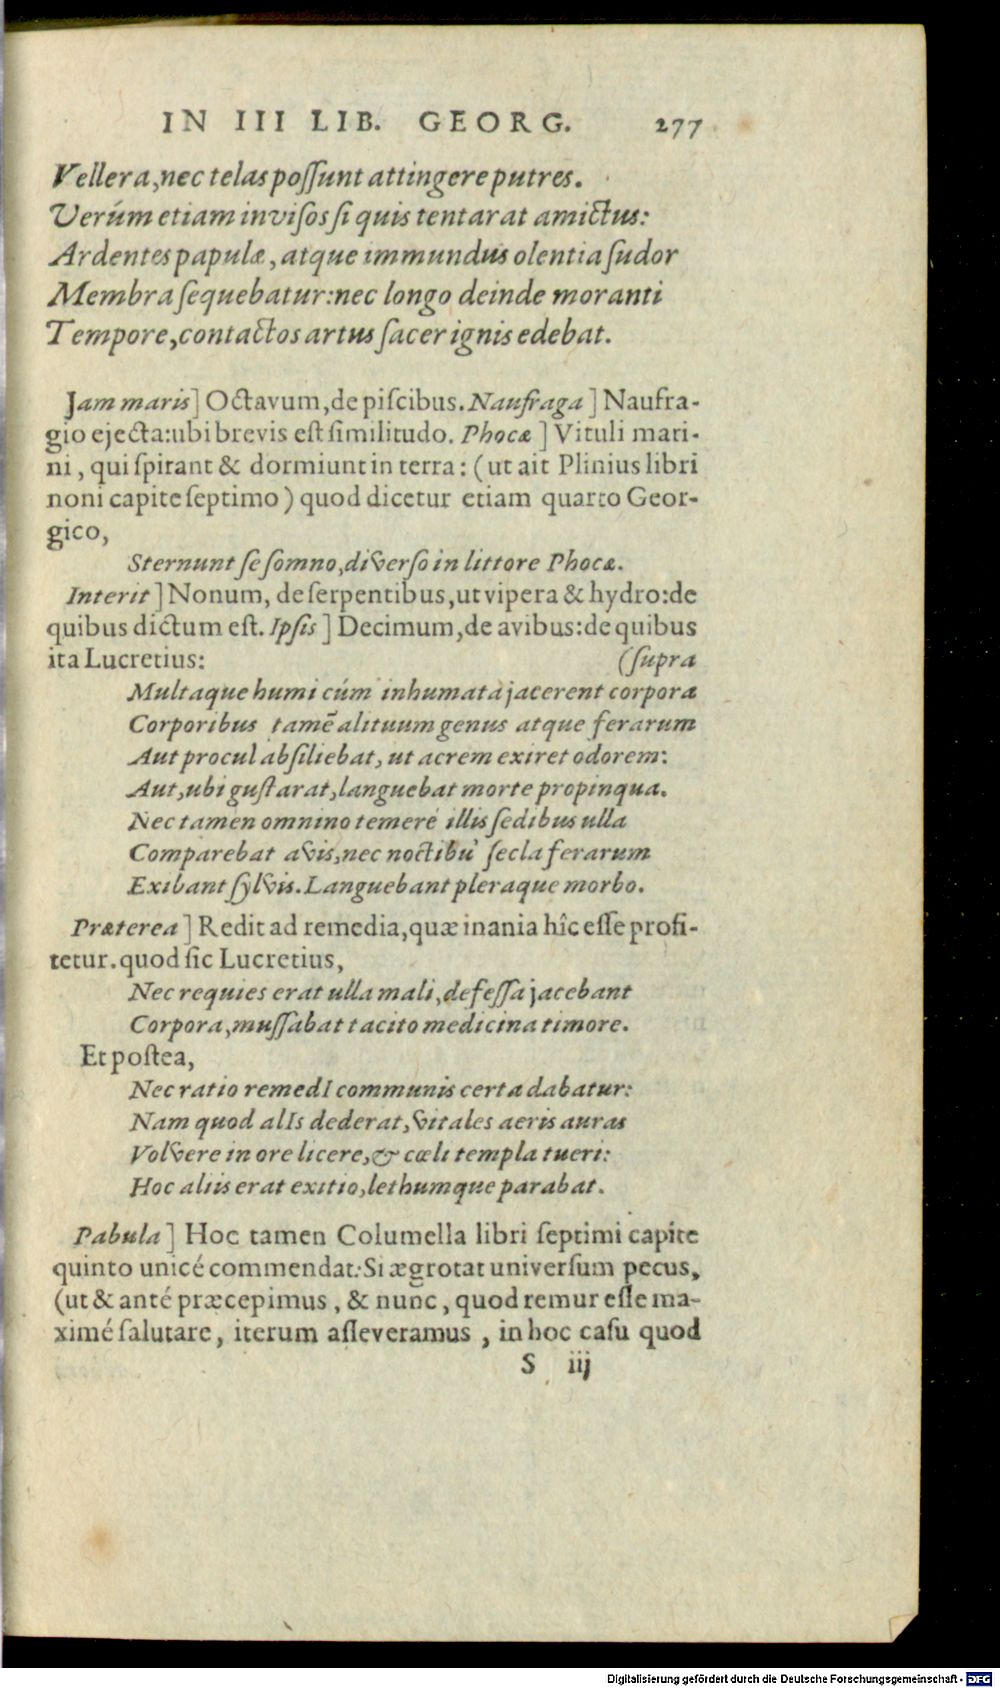 IN III LIB. GEORG. 277
Vellera, nec telas poſſunt attingere putres.
Verúm etiam inviſos ſi quis tentarat amictus:
Ardentes papulæ, atque immundus olentia ſudor
Membra ſequebatur: nec longo deinde moranti
Tempore, contactos artus ſacer ignis edebat.
Jam maris] Octavum, de piſcibus. Naufraga] Naufra-
gio ejecta: ubi brevis eſt ſimilitudo. Phocæ] Vituli mari-
ni, qui ſpirant & dormiunt in terra: (ut ait Plinius libri
noni capite ſeptimo) quod dicetur etiam quarto Geor-
gico,
Sternunt ſe ſomno, diverſo in littore Phocæ.
Interit] Nonum, de ſerpentibus, ut vipera & hydro: de
quibus dictum eſt. Ipſis] Decimum, de avibus: de quibus
ita Lucretius: (ſupra
Multaque humi cúm inhumata jacerent corpora
Corporibus tamē alituum genus atque ferarum
Aut procul abſiliebat, ut acrem exiret odorem:
Aut, ubi guſtarat, languebat morte propinqua.
Nec tamen omnino temeré illis ſedibus ulla
Comparebat avis, nec noctibu' ſecla ferarum
Exibant ſylvis. Languebant pleraque morbo.
Præterea] Redit ad remedia, quæ inania hîc eſſe profi-
tetur. quod ſic Lucretius,
Nec requies erat ulla mali, defeſſa jacebant
Corpora, muſſabat tacito medicina timore.
Et poſtea,
Nec ratio remedI communis certa dabatur:
Nam quod alIs dederat, vitales aeris auras
Volvere in ore licere, & cœli templa tueri:
Hoc aliis erat exitio, lethumque parabat.
Pabula] Hoc tamen Columella libri ſeptimi capite
quinto unicé commendat: Si ægrotat univerſum pecus,
(ut & anté præcepimus, & nunc, quod remur eſſe ma-
ximé ſalutare, iterum aſſeveramus, in hoc caſu quod
S iij
Digitalisierung gefördert durch die Deutsche Forschungsgemeinschaft - DFG